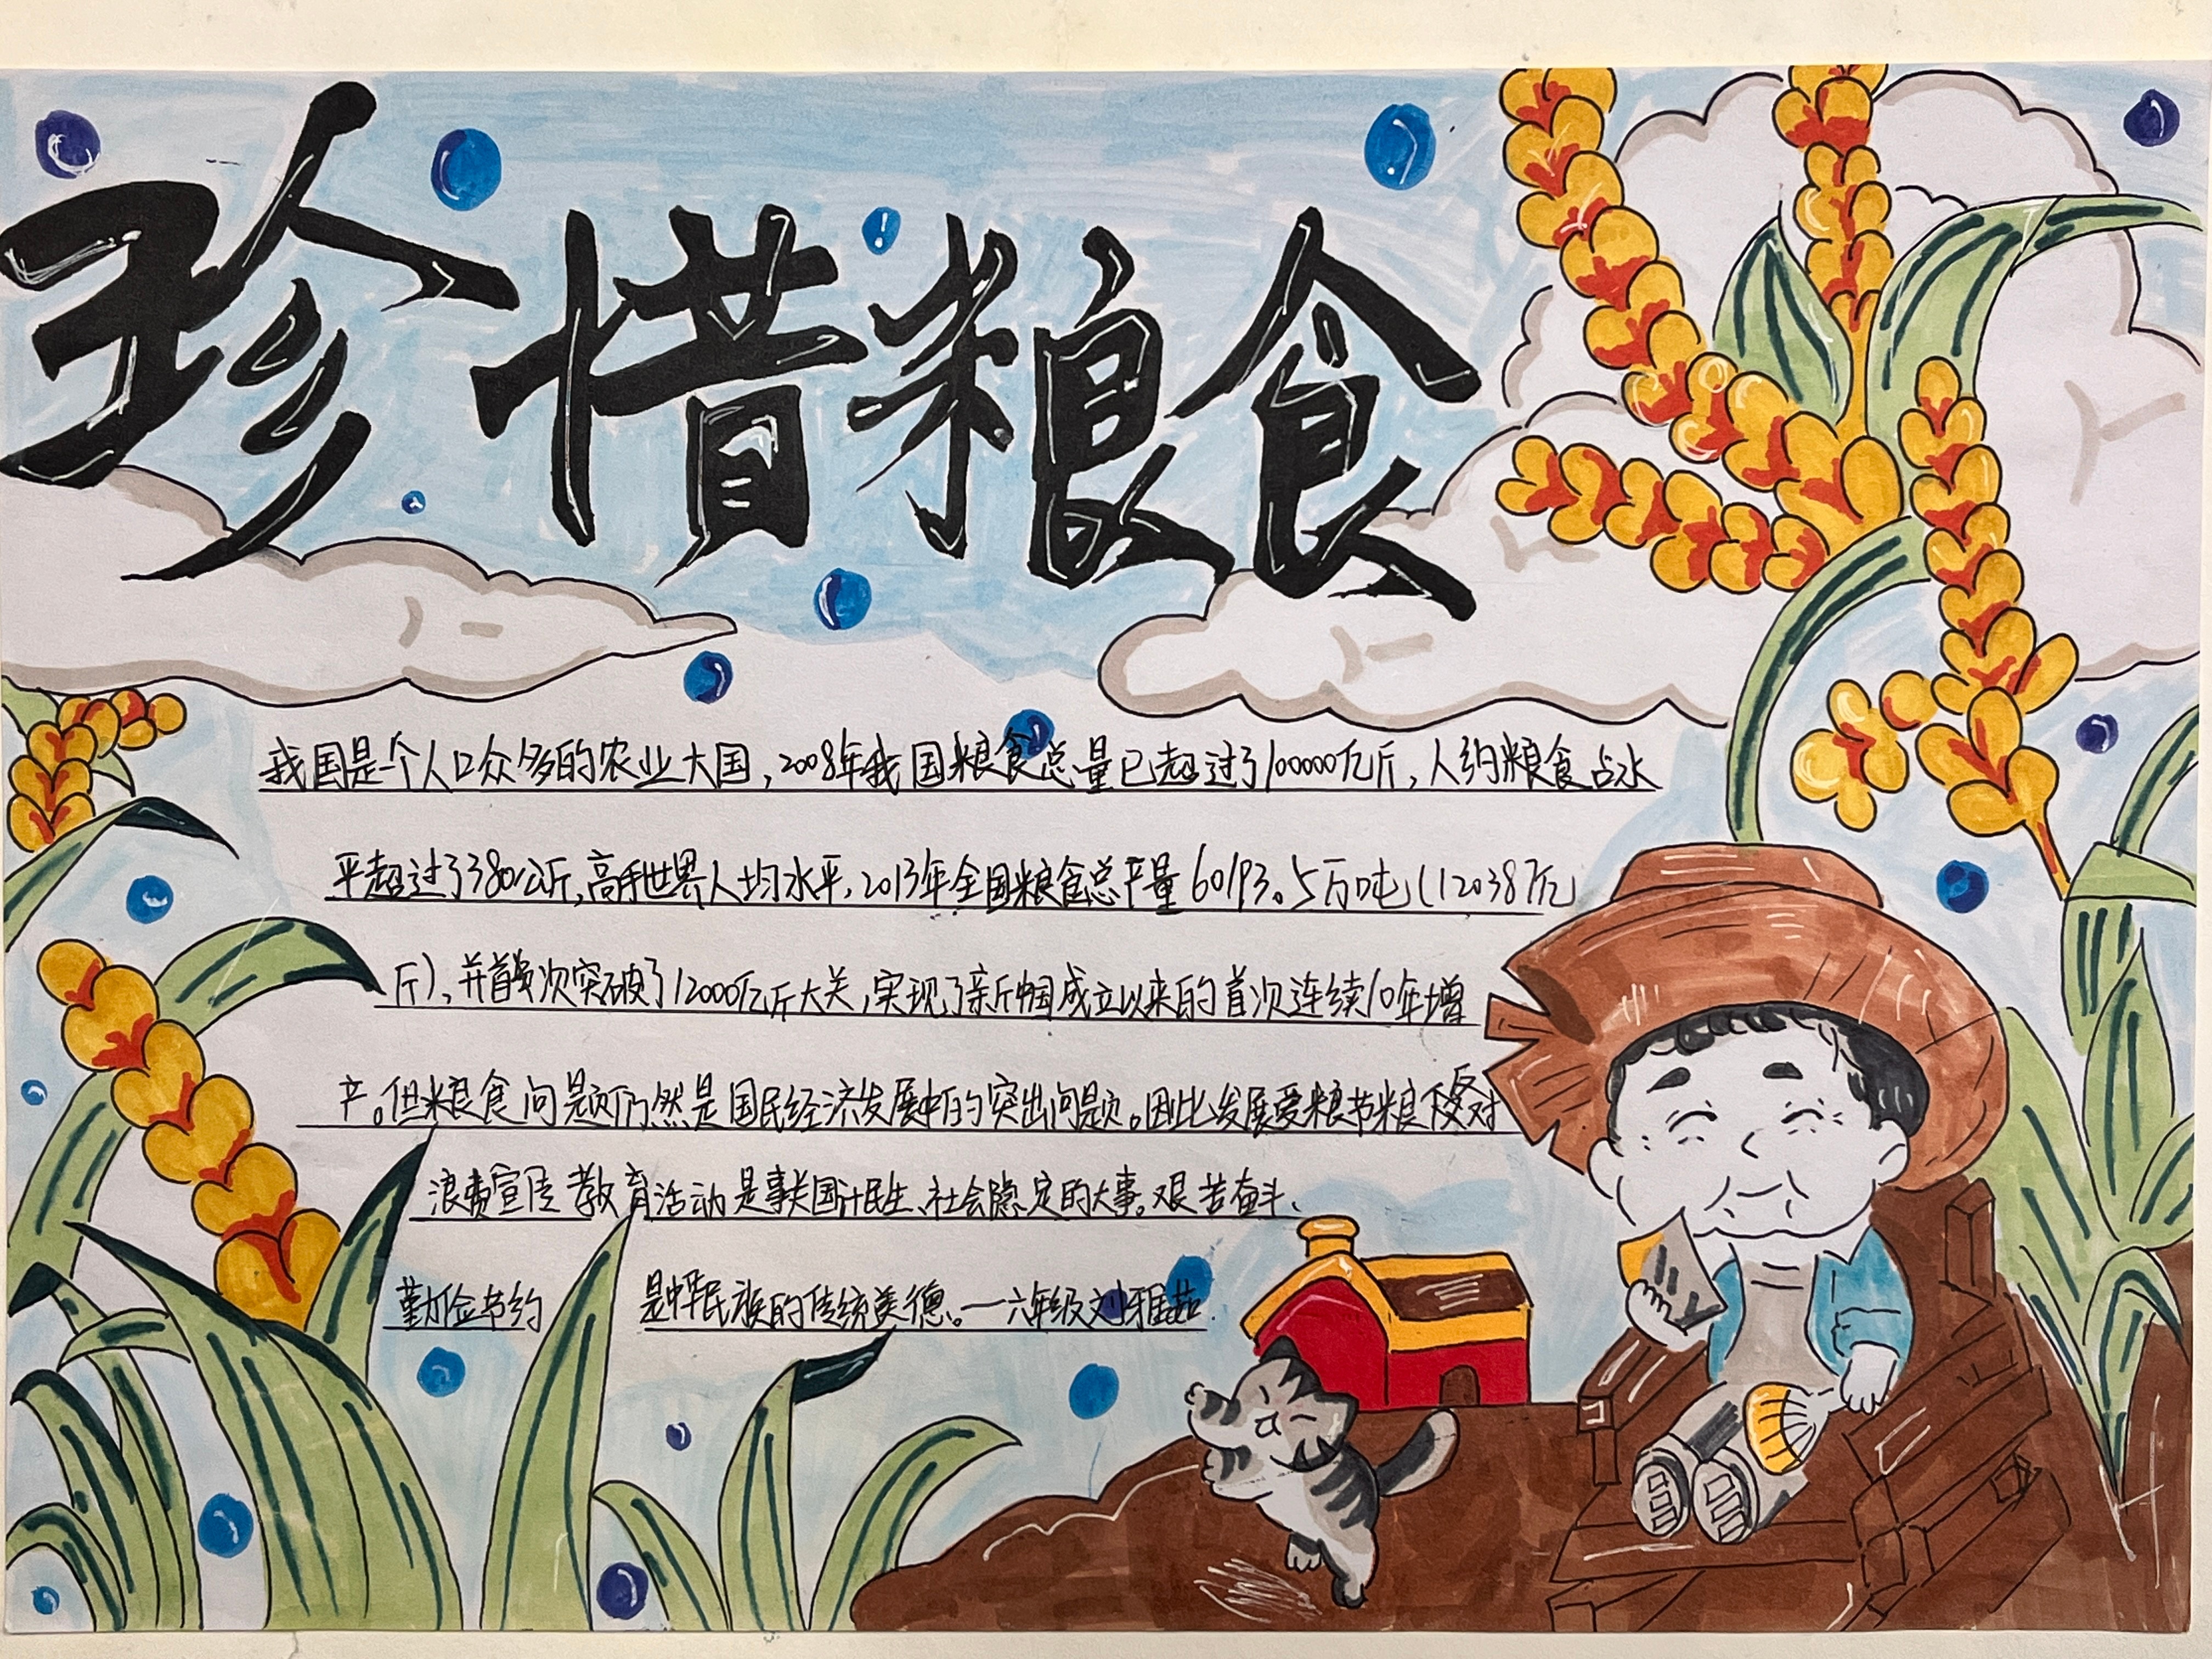 珍惜粮食
我国是个人口众多的农业大国,2008年我国粮食总量已超过了100000亿斤,人约粮食占水
平超过了380公斤,高于世界人均水平,2013年全国粮食总产量60193.5万吨(12038亿
斤),并首次突破了12000亿斤大关,实现了新中国成立以来的首次连续10年增
产。但粮食问题仍然是国民经济发展中的突出问题。因此发展爱粮节粮反对
浪费宣传教育活动是事关国计民生、社会隐定的大事。艰苦奋斗、
勤俭节约 是中华民族的传统美德。一六年级刘雅茹.